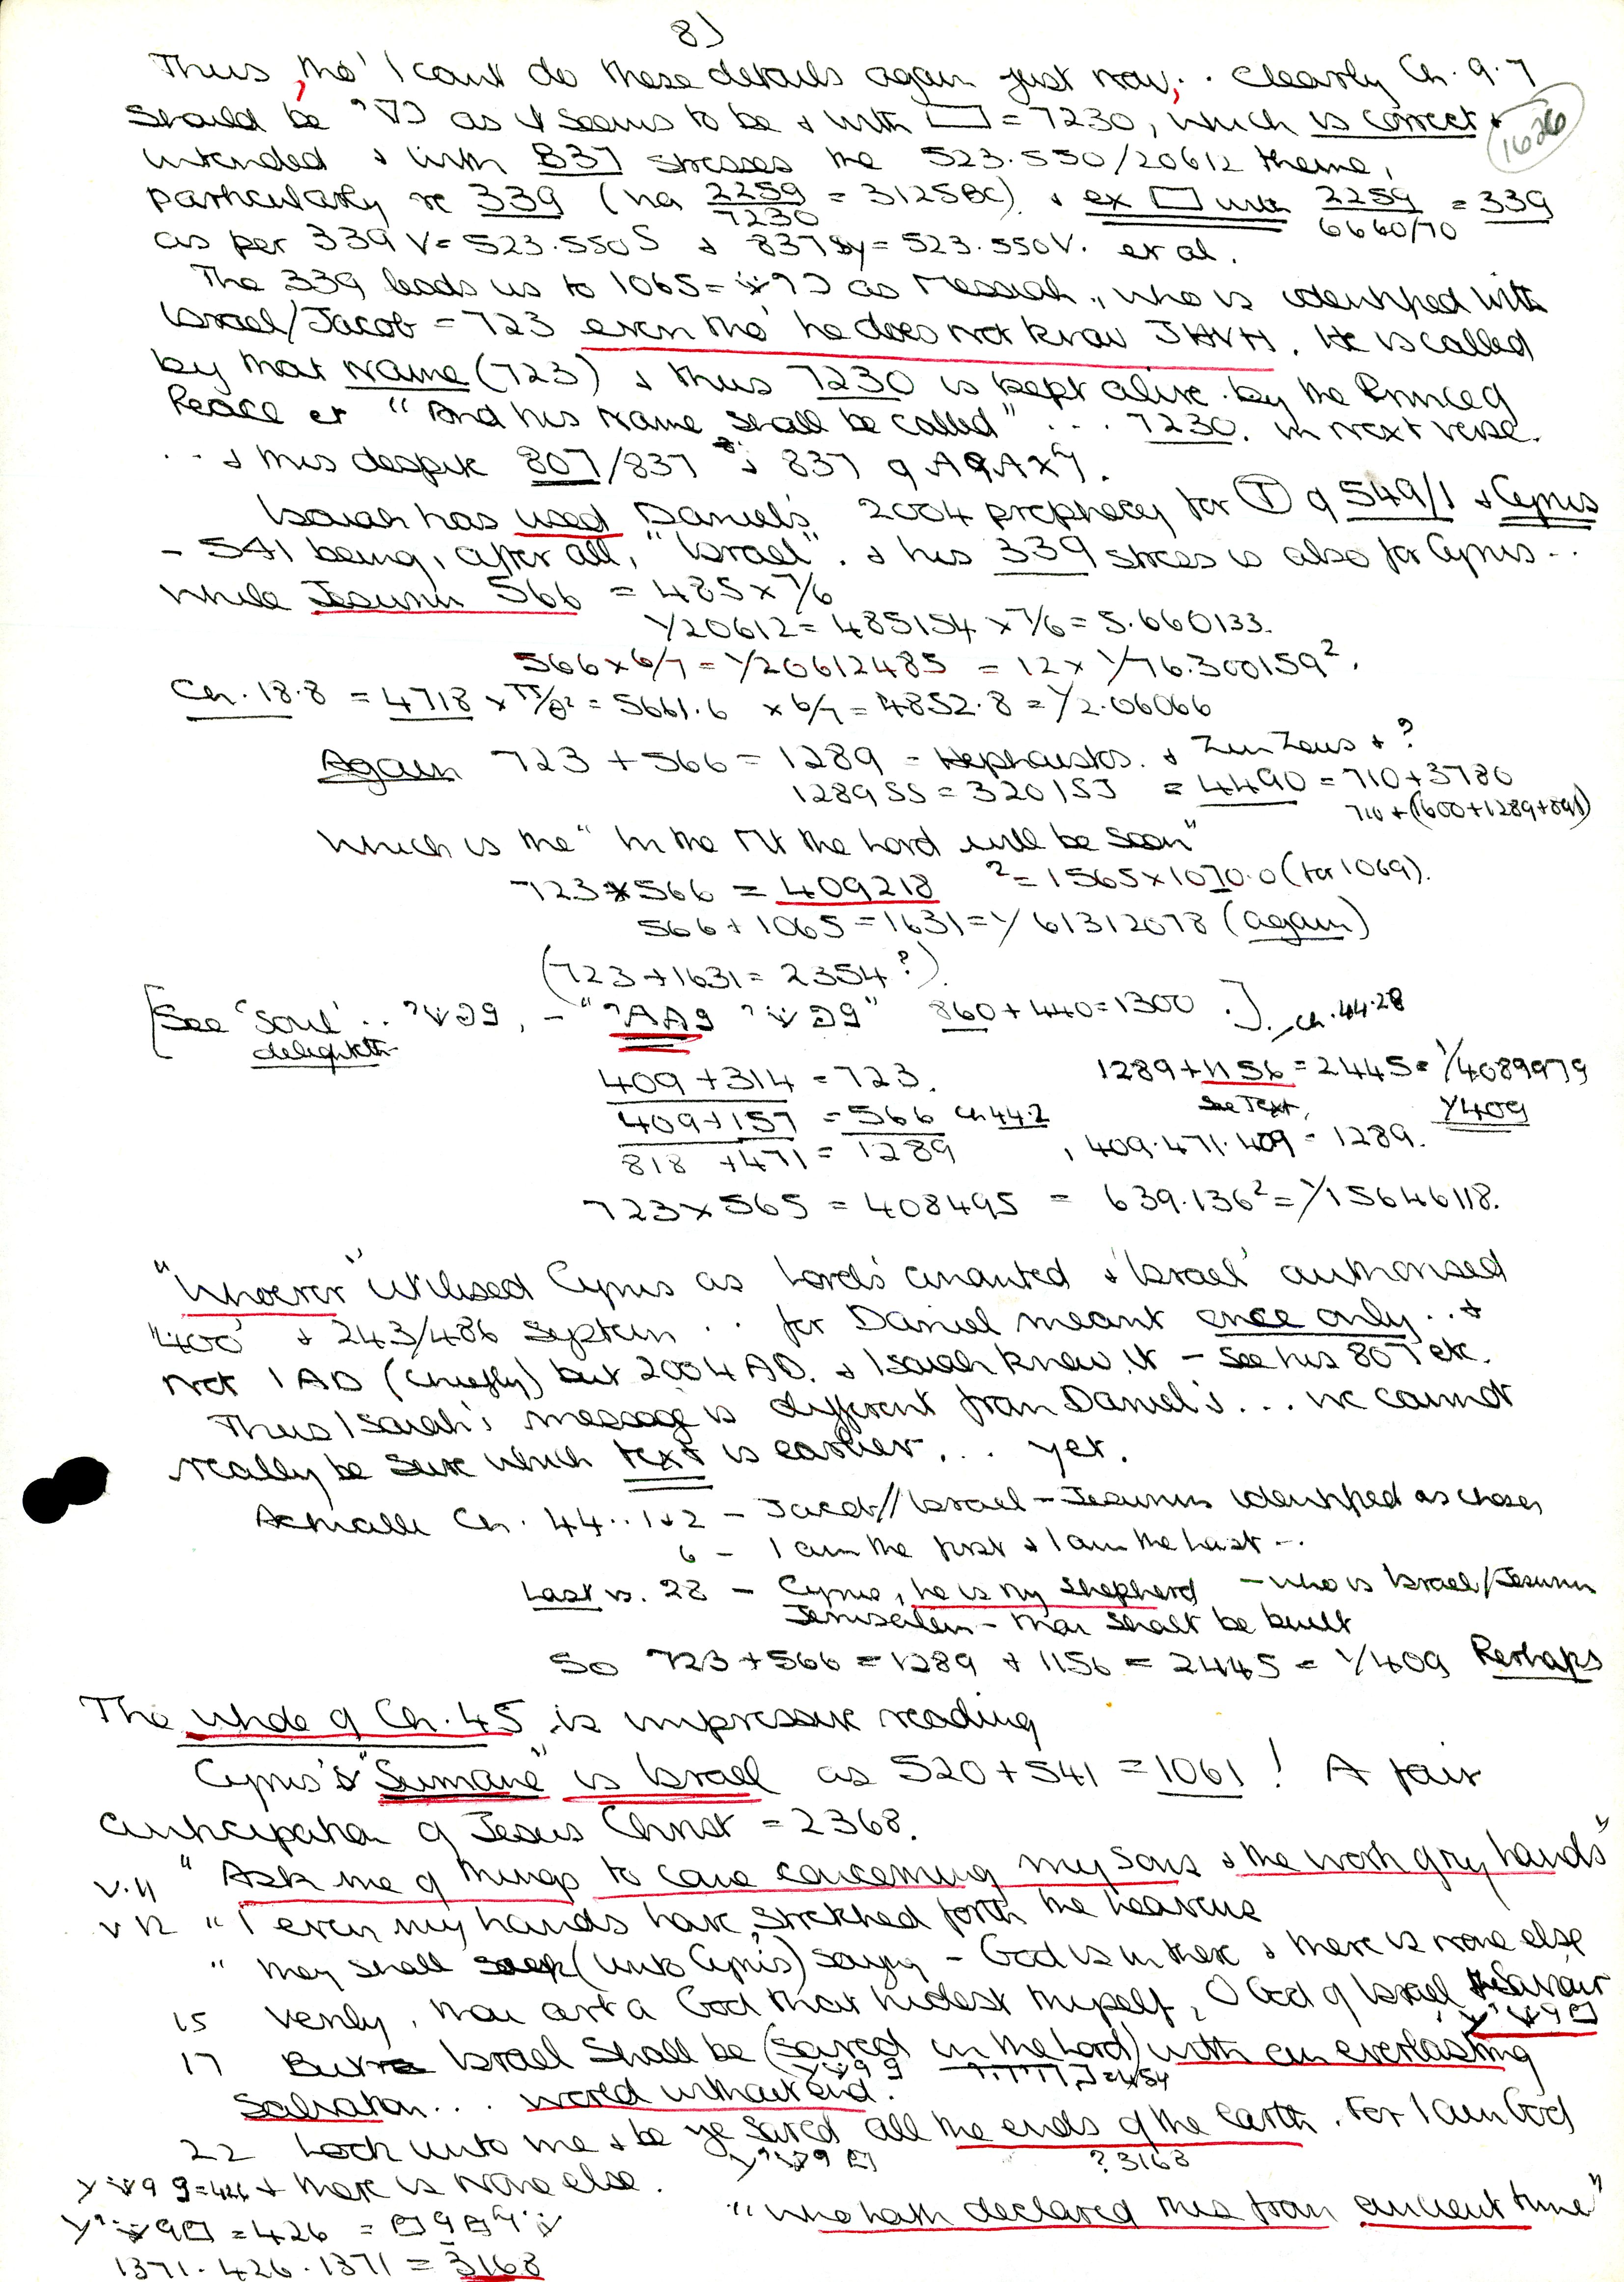 8)
Thus, tho' I can't do these details again just now, . Clearly Ch. 9.7
should be as it seems to be & with = 7230, which is correct &
1626
intended & with 837 stresses the 523.550/20612 theme,
particularly re 339 (via 2259/7230 = 3125BC) & ex with 2259/6660/70 = 339
as per 339 V = 523.550 S & 837 Sy = 523.550V. et al.
The 339 leads us to 1065 = as Messiah, who is identified with
Israel/Jacob = 723 even tho' he does not know JHVH. He is called
by that name (723) & thus 7230 is kept alive by the Prince of
Peace et "And his name shall be called" ... 7230. in next verse.
.. & this despite 807/837 & 837 of
Isaiah has used Daniel's 2004 prophecy for of 549/1 & Cyrus
- 541 being, after all, "Israel". & his 339 stress is also for Cyrus ..
while Jesurun 566 = 485 x 7/6
1/20612 = 485154 x 7/6 = 5.660133.
566 x 6/7 = 1/20612485 = 12 x 1/76.300159².
Ch. 18.8 = 4718 x = 5661.6 x 6/7 = 4852.8 = 1/2.06066
Again 723 + 566 = 1289 - Hephaistos. & Zeus & ?
1289 SS = 3201 SJ = 4490 = 710 + 3780
710 + (1600 + 1289 + 891)
Which is the "In the Mt the Lord will be seen"
723 x 566 = 409218 ² = 1565 x 1070.0 (for 1069).
566 + 1065 = 1631 = 1/61312078 (again)
(723 + 1631 = 2354 ?)
[See 'Soul' .. , - " " 860 + 440 = 1300 .] - Ch. 44.28
delighteth
409 + 314 = 723.
1289 + 1156 = 2445 = 1/4089979
409 + 157 = 566 Ch 44.2
See Text, 1/409
818 + 471 = 1289 , 409.471.409 = 1289.
723 x 565 = 408495 = 639.136² = 1/15646118.
"Whoever" utilised Cyrus as Lord's anointed & 'Israel' authorised
'400' & 243/486 system .. for Daniel meant once only .. &
not 1 AD (chiefly) but 2004 AD. & Isaiah knew it - see his 807 etc.
Thus Isaiah's message is different from Daniel's ... we cannot
really be sure which text is earlier ... yet.
Actualle Ch. 44 .. 1 & 2 - Jacob // Israel - Jesurun identified as chosen
6 - I am the first & I am the last ..
Last v. 28 - Cyrus, he is my shepherd - who is Israel/Jesurun
Jerusalem - thou shalt be built
So 723 + 566 = 1289 + 1156 = 2445 = 1/409 Perhaps
The whole of Ch. 45 is impressive reading
Cyrus's "Surname" is Israel as 520 + 541 = 1061! A fair
anticipation of Jesus Christ = 2368.
v. 11 "Ask me of things to come concerning my sons & the work of my hands"
v 12 "I even my hands have stretched forth the heavens
" they shall (unto Cyrus) saying - God is in thee & there is none else
15 Verily, thou art a God that hidest thyself, O God of Israel the Saviour
17 But Israel shall be (saved in the Lord) with an everlasting
Salvation ... world without end.
22 Look unto me & be ye saved all the ends of the Earth. For I am God
? 3168
= 426 & there is none else.
"who hath declared this from ancient time"
= 426 =
1371.426.1371 = 3168